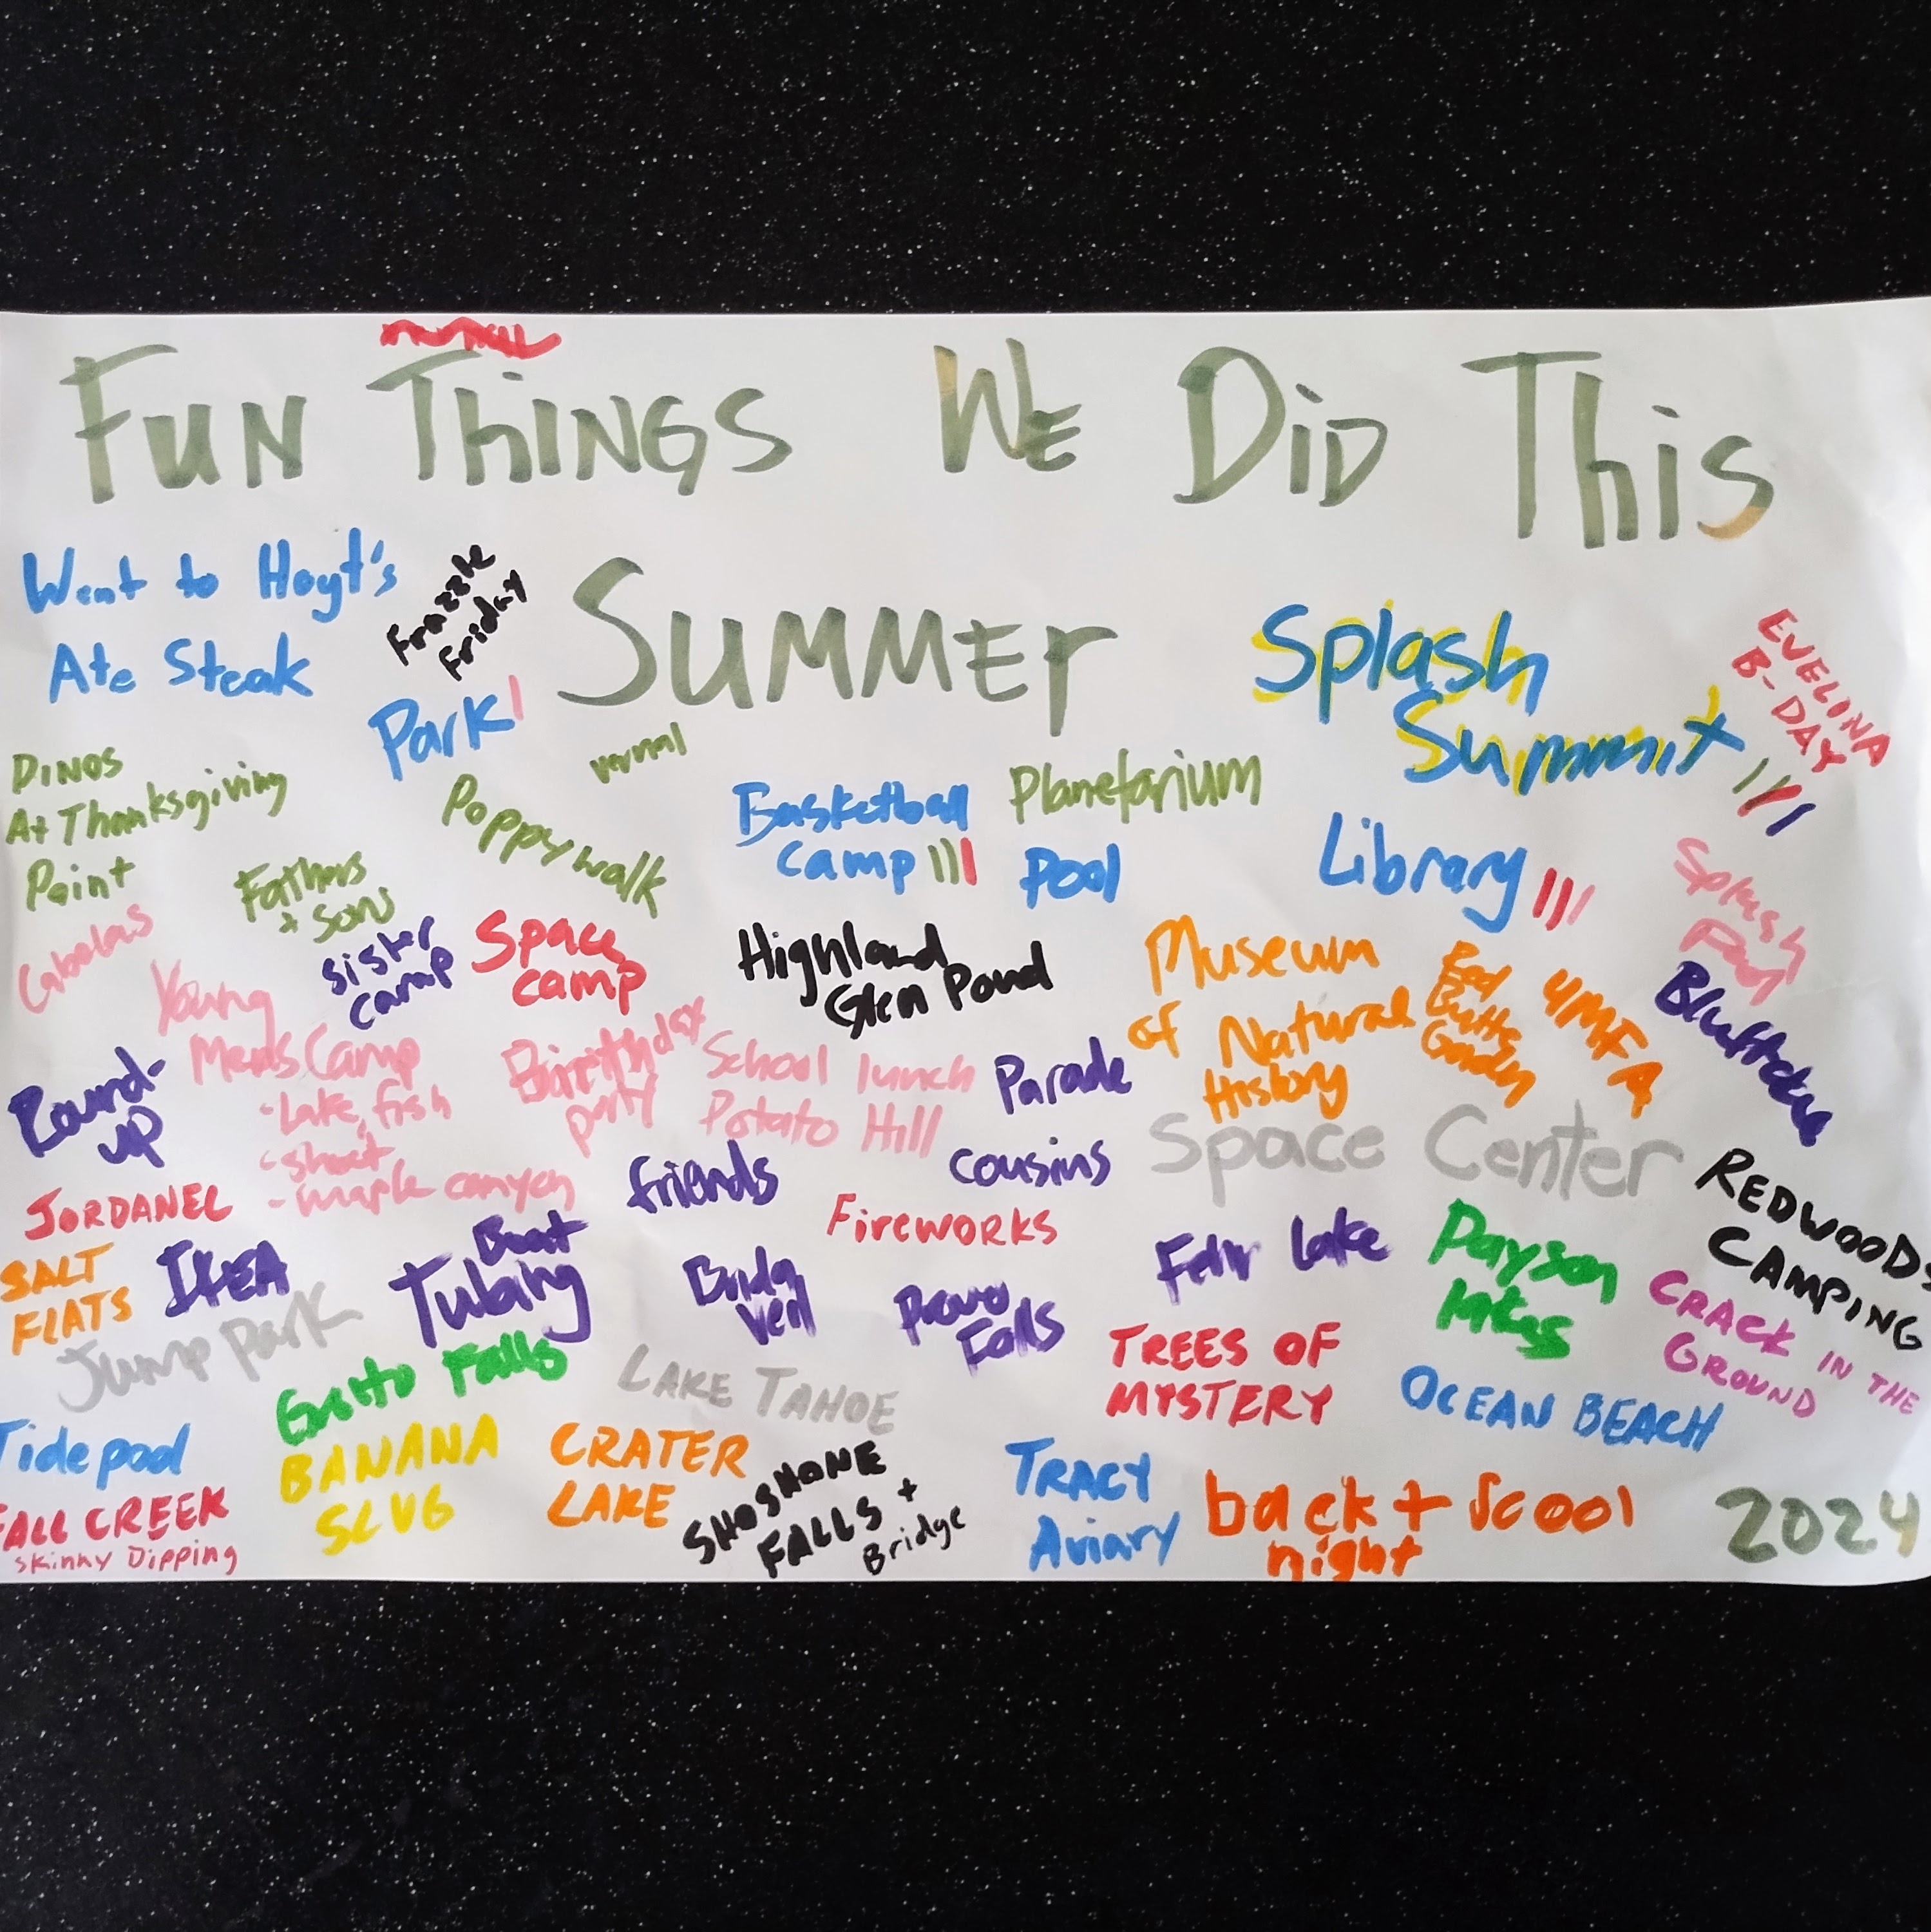 FUN THINGS WE DiD This
SUMMEr
Went to Hoyt's
Ate Steak
Frazzle
Friday
Park |
vernal
Splash
Summit ||||
EVELINA
B-DAY
DINOS
At Thanksgiving
Point
Poppy walk
Basketball
camp |||
Planetarium
Pool
Library |||
Splash
Pad
Fathers
+ Sons
Cabelas
Sister
Camp
Space
camp
Highland
Glen Pond
Museum
of Natural
History
Red
Butte
Garden
UMFA
Young
Mens Camp
-Lake, fish
-shoot
-maple canyon
Round-
up
Birthday
party
School lunch
Potato Hill
Parade
friends
cousins
Space Center
REDWOODS
CAMPING
JORDANEL
Fireworks
SALT
FLATS
IKEA
Boat
Tubing
Bridal
Veil
Provo
Falls
Lake
Payson
lakes
CRACK IN THE
GROUND
Jump park
Falls
LAKE TAHOE
TREES OF
MYSTERY
OCEAN BEACH
Tide pool
BANANA
SLUG
CRATER
LAKE
SHOSHONE
FALLS +
Bridge
TRACY
Aviary
back + Scool
night
FALL CREEK
Skinny Dipping
2024